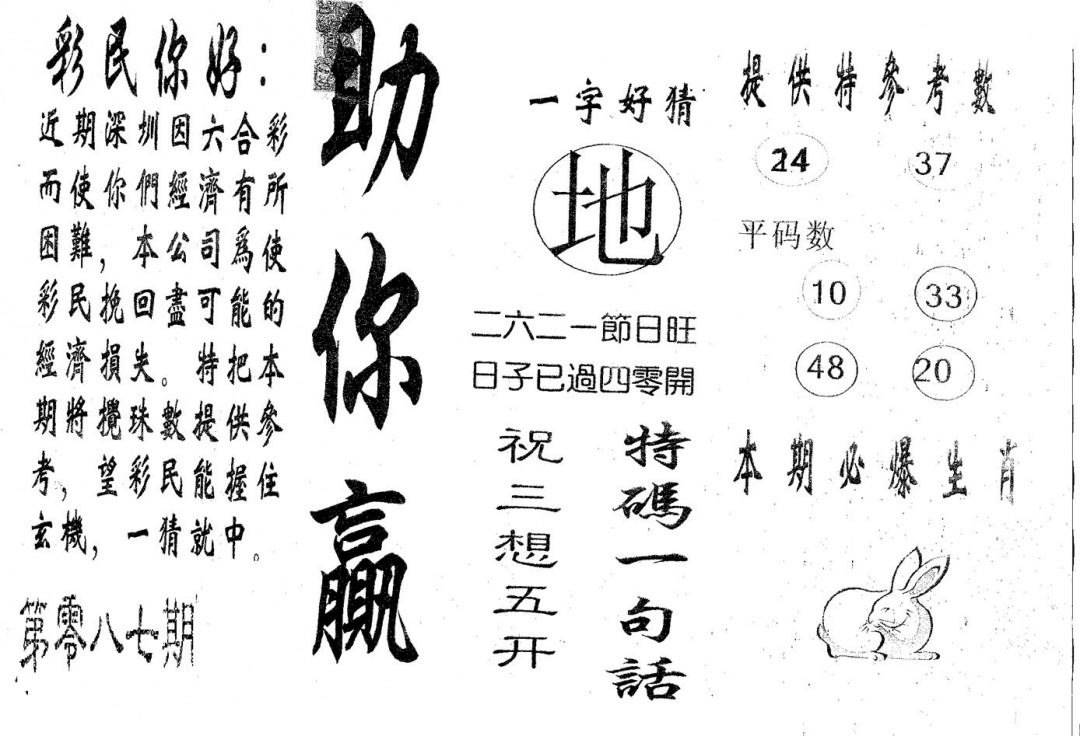 彩民你好:
近期深圳因六合彩
而使你們經濟有所
困難,本公司爲使
彩民挽回盡可能的
經濟損失。特把本
期將攪珠數提供參
考,望彩民能握住
玄機,一猜就中。
第零八七期
助你贏
一字好猜
地
二六二一節日旺
日子已過四零開
祝三想五开
特碼一句話
提供特參考數
24 37
平码数
10 33
48 20
本期必爆生肖